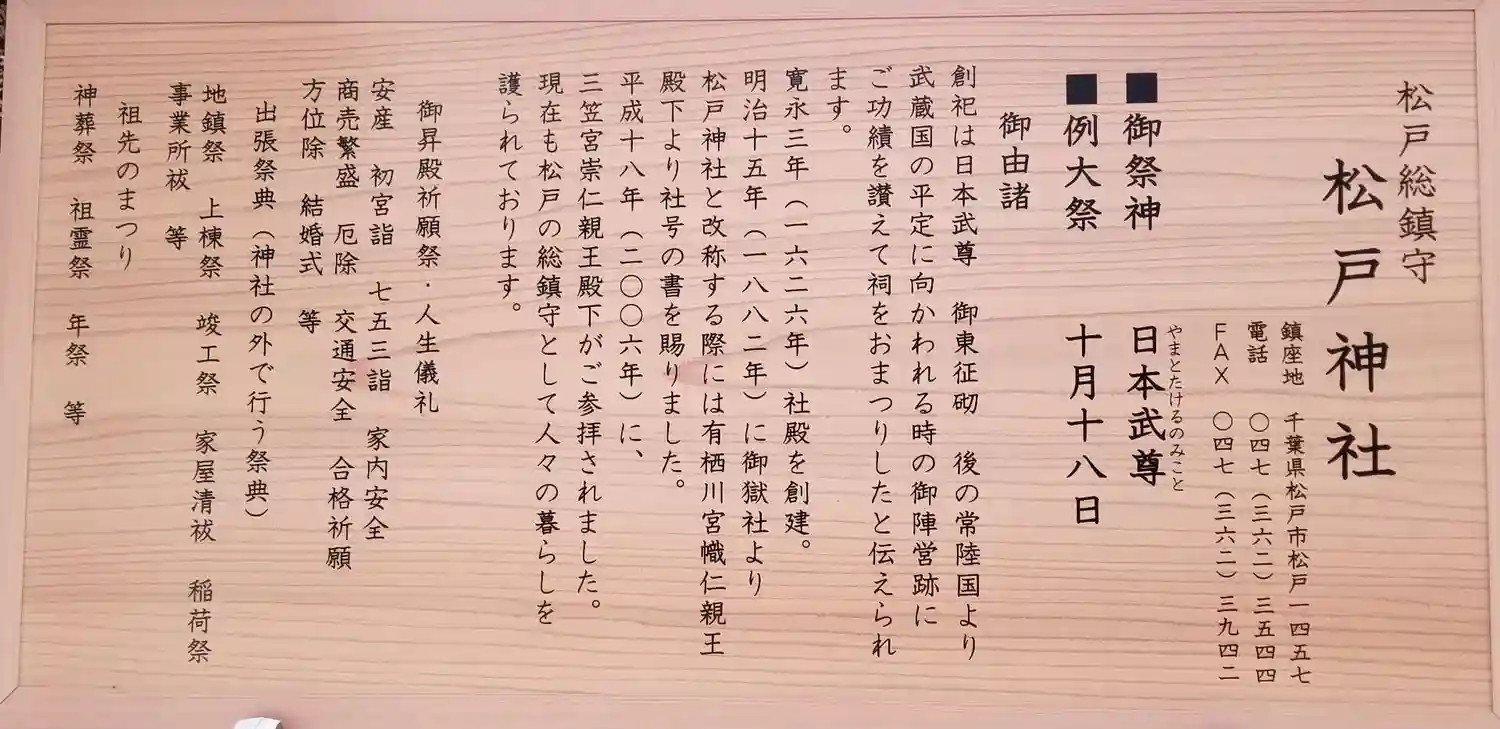 松戸総鎮守
松戸神社
鎮座地　千葉県松戸市松戸一四五七
電話　〇四七（三六二）三五四四
ＦＡＸ　〇四七（三六二）三九四二
■御祭神　日本武尊
やまとたけるのみこと
■例大祭　十月十八日
御由諸
創祀は日本武尊　御東征砌　後の常陸国より
武蔵国の平定に向かわれる時の御陣営跡に
ご功績を讃えて祠をおまつりしたと伝えられ
ます。
寛永三年（一六二六年）社殿を創建。
明治十五年（一八八二年）に御獄社より
松戸神社と改称する際には有栖川宮幟仁親王
殿下より社号の書を賜りました。
平成十八年（二〇〇六年）に、
三笠宮崇仁親王殿下がご参拝されました。
現在も松戸の総鎮守として人々の暮らしを
護られております。
御昇殿祈願祭・人生儀礼
安産　初宮詣　七五三詣　家内安全
商売繁盛　厄除　交通安全　合格祈願
方位除　結婚式　等
出張祭典（神社の外で行う祭典）
地鎮祭　上棟祭　竣工祭　家屋清祓　稲荷祭
事業所祓　等
祖先のまつり
神葬祭　祖霊祭　年祭　等